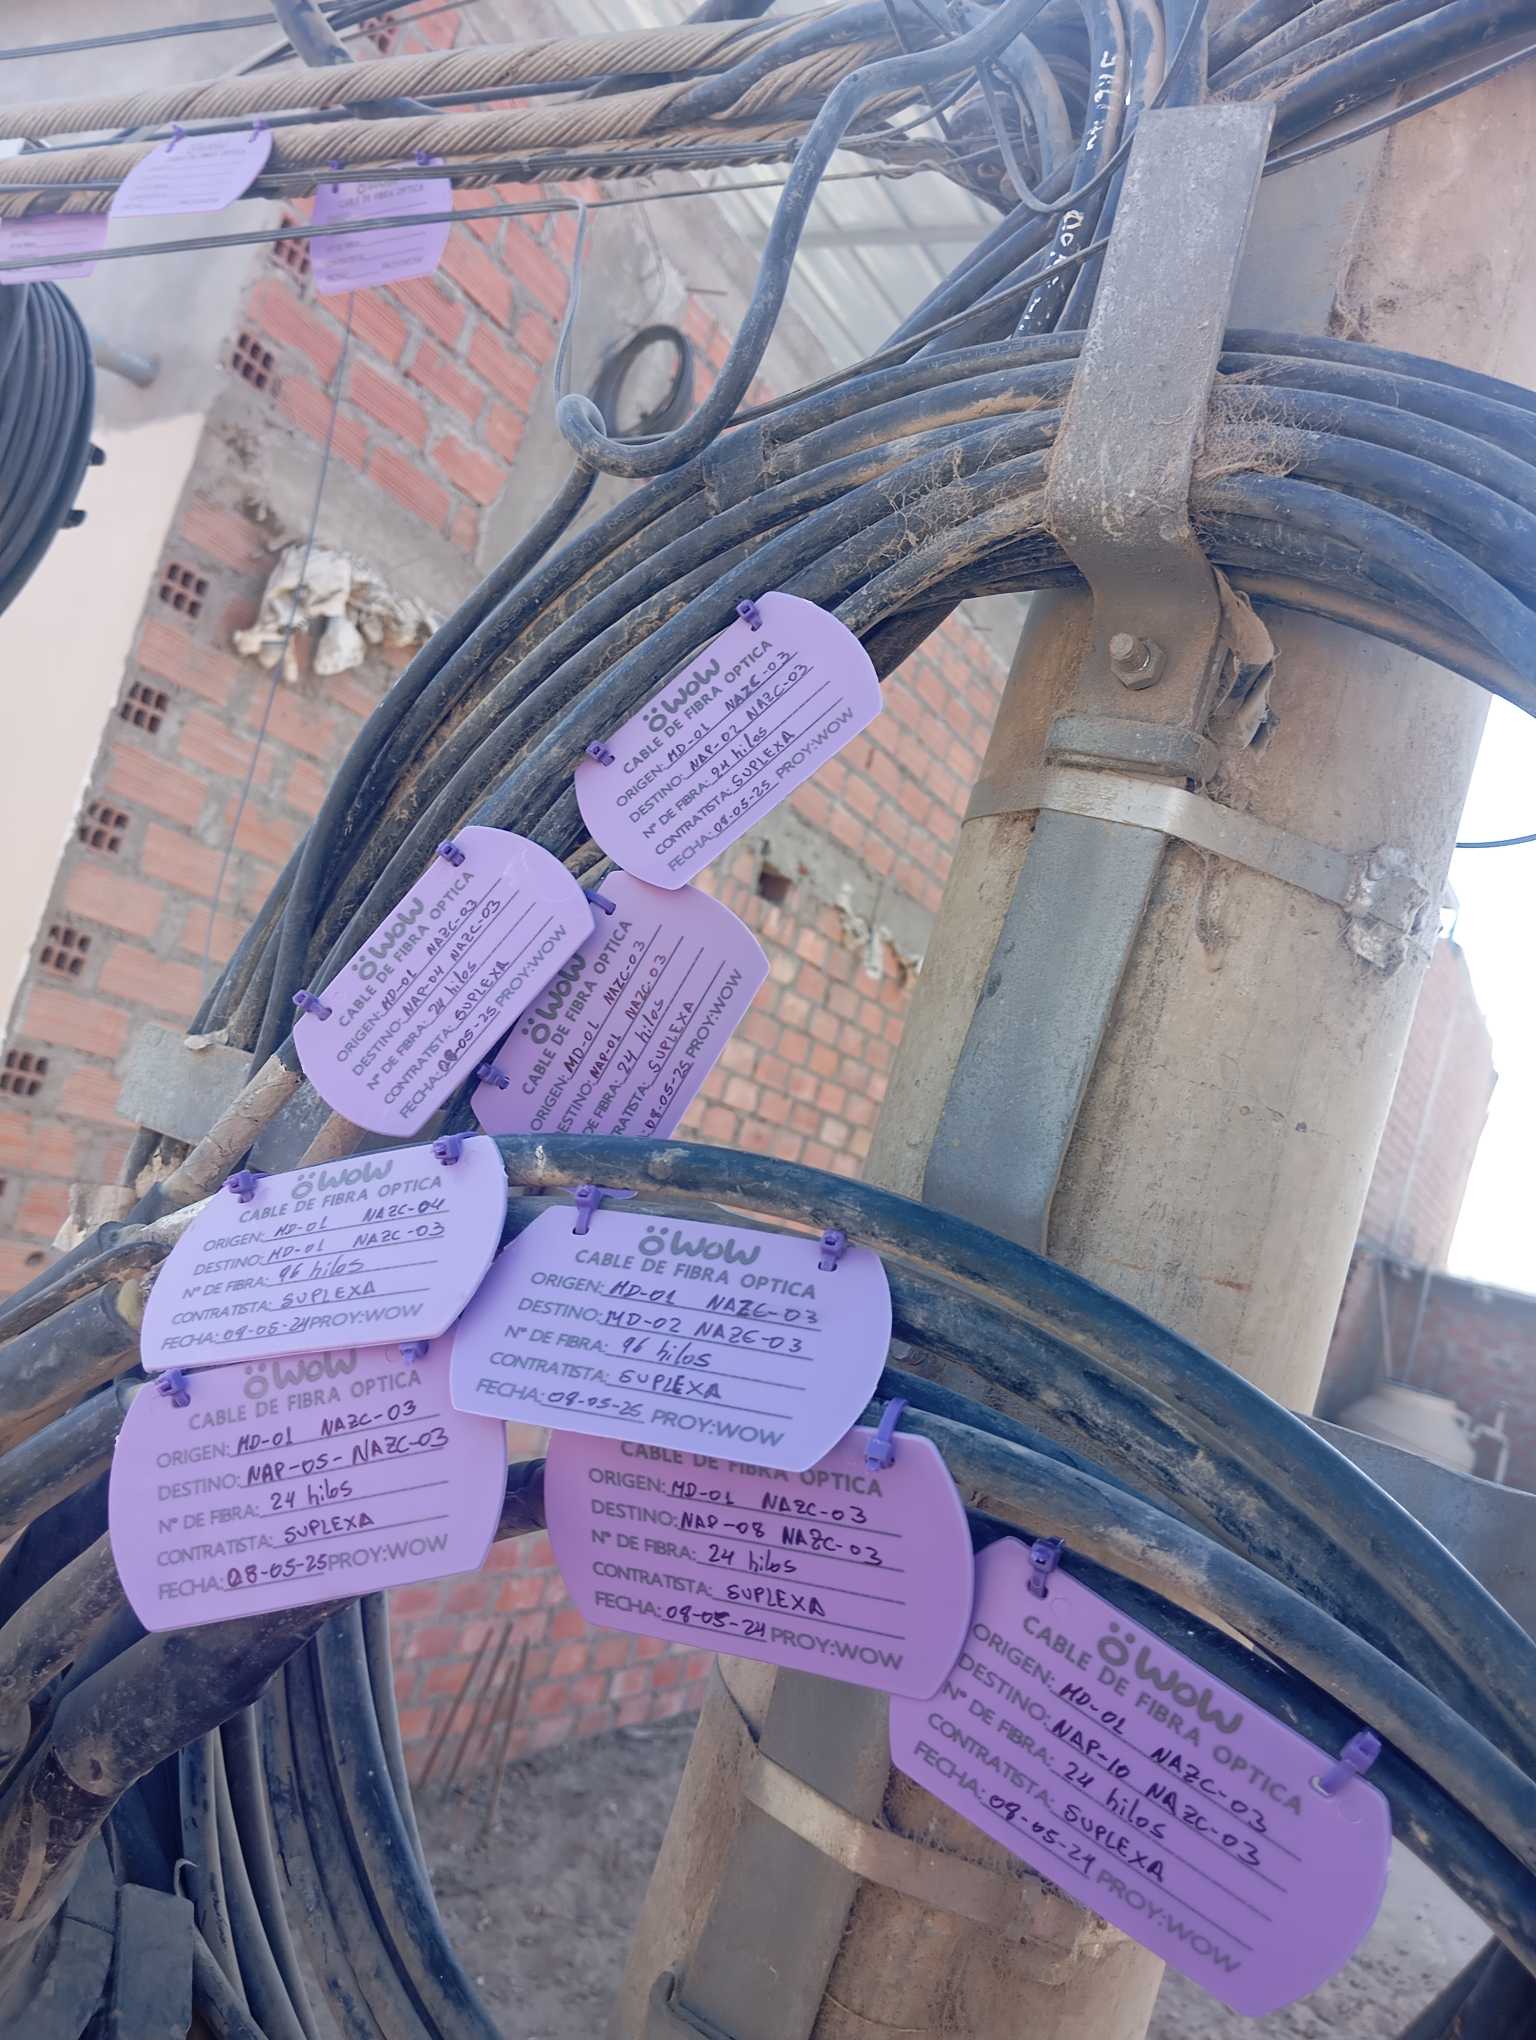 CABLE DE FIBRA OPTICA
WOW
CABLE DE FIBRA OPTICA
ORIGEN: MD-01 NAZC-03
DESTINO: NAP-02 NAZC-03
N° DE FIBRA: 24 hilos
CONTRATISTA: SUPLEXA
FECHA: 08-05-25 PROY:WOW
WOW
CABLE DE FIBRA OPTICA
ORIGEN: MD-01 NAZC-03
DESTINO: NAP-04 NAZC-03
N° DE FIBRA: 24 hilos
CONTRATISTA: SUPLEXA
FECHA: 08-05-25 PROY:WOW
WOW
CABLE DE FIBRA OPTICA
ORIGEN: MD-01 NAZC-03
ESTINO: NAP-01 NAZC-03
DE FIBRA: 24 hilos
RATISTA: SUPLEXA
08-05-25 PROY:WOW
WOW
CABLE DE FIBRA OPTICA
ORIGEN: MD-01 NAZC-04
DESTINO: MD-01 NAZC-03
N° DE FIBRA: 96 hilos
CONTRATISTA: SUPLEXA
FECHA: 08-05-24 PROY:WOW
WOW
CABLE DE FIBRA OPTICA
ORIGEN: MD-01 NAZC-03
DESTINO: MD-02 NAZC-03
N° DE FIBRA: 96 hilos
CONTRATISTA: SUPLEXA
FECHA: 08-05-25 PROY:WOW
WOW
CABLE DE FIBRA OPTICA
ORIGEN: MD-01 NAZC-03
DESTINO: NAP-05-NAZC-03
N° DE FIBRA: 24 hilos
CONTRATISTA: SUPLEXA
FECHA: 08-05-25 PROY:WOW
CABLE DE FIBRA OPTICA
ORIGEN: MD-01 NAZC-03
DESTINO: NAP-08 NAZC-03
N° DE FIBRA: 24 hilos
CONTRATISTA: SUPLEXA
FECHA: 08-05-24 PROY:WOW
WOW
CABLE DE FIBRA OPTICA
ORIGEN: MD-01 NAZC-03
DESTINO: NAP-10 NAZC-03
N° DE FIBRA: 24 hilos
CONTRATISTA: SUPLEXA
FECHA: 08-05-24 PROY:WOW